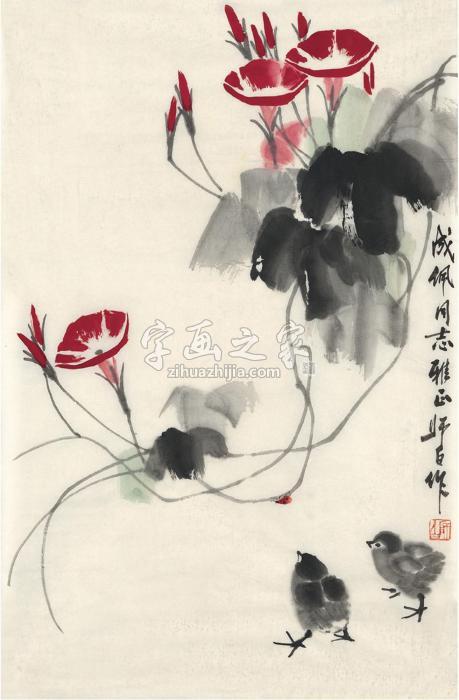 成佩同志雅正娄师白作
字画之家
zihuazhijia.com